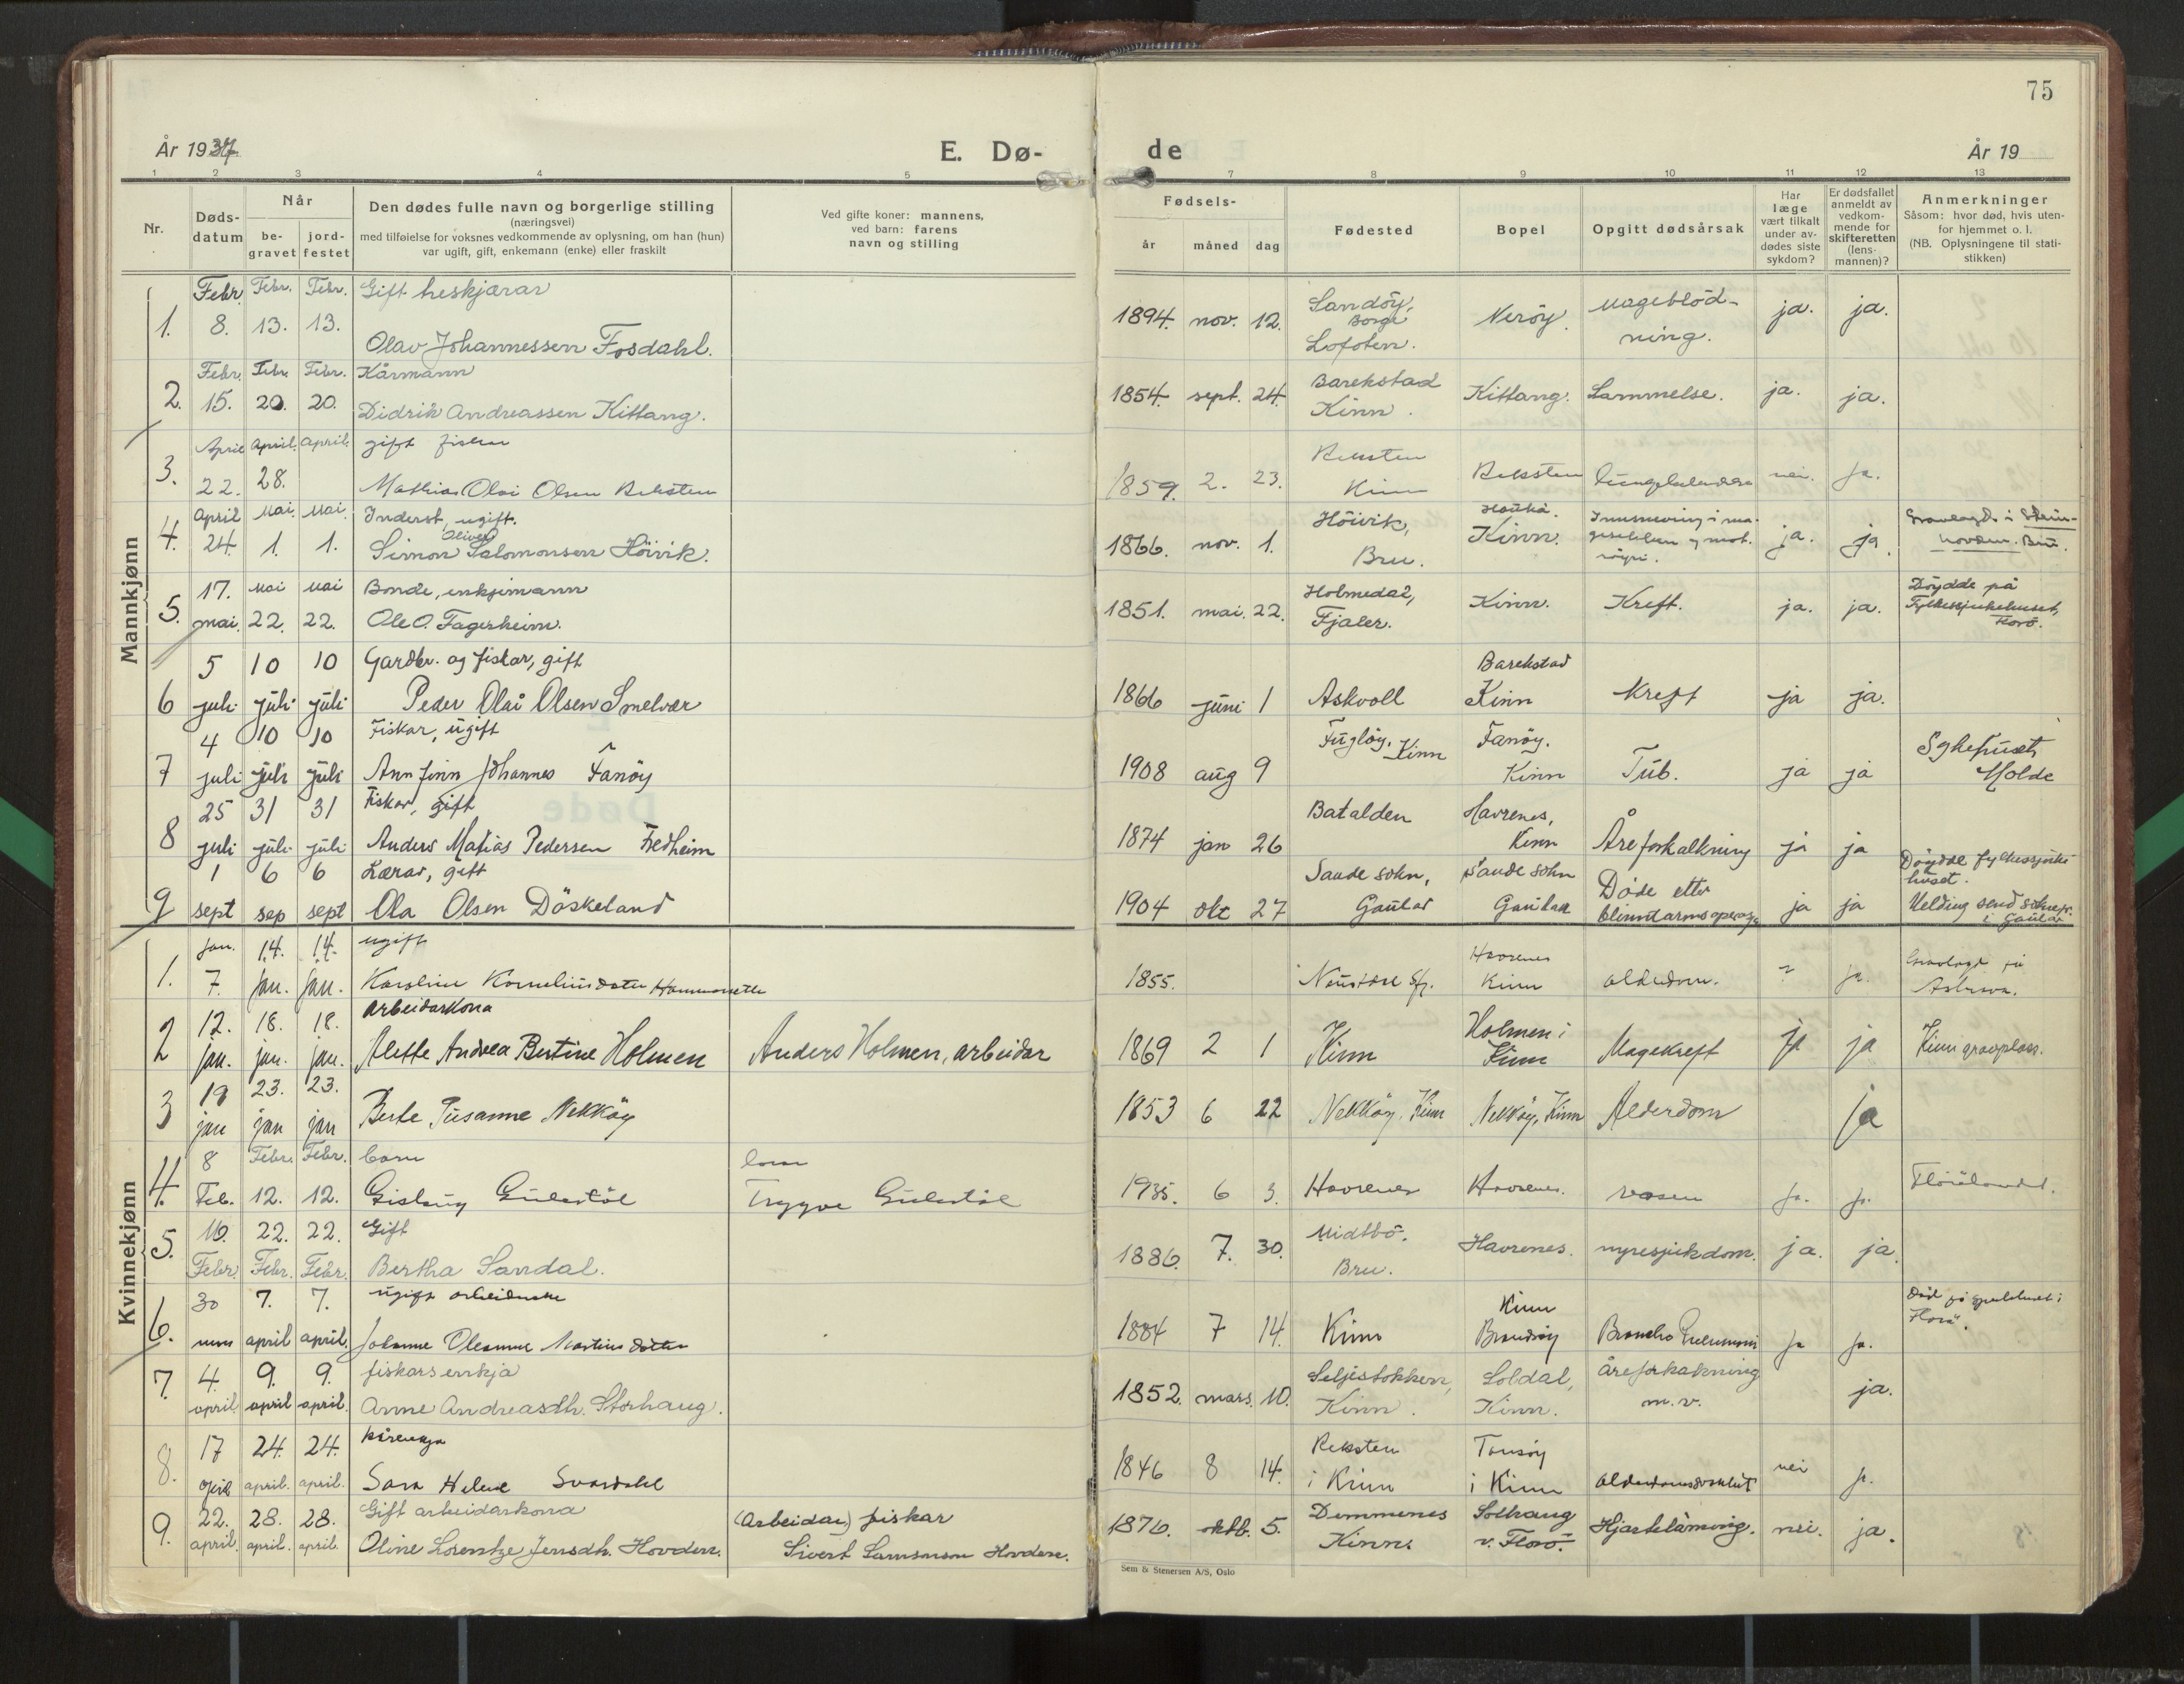 75
År 1937
E. Dø-
de
År 19
1 2 3 4 5 7 8 9 10 11 12 13
Nr.
Døds-
datum
Når
be-
gravet
jord-
festet
Den dødes fulle navn og borgerlige stilling
(næringsvei)
med tilføielse for voksnes vedkommende av oplysning, om han (hun)
var ugift, gift, enkemann (enke) eller fraskilt
Ved gifte koner: mannens,
ved barn: farens
navn og stilling
Fødsels-
år måned dag
Fødested
Bopel
Opgitt dødsårsak
Har
læge
vært tilkalt
under av-
dødes siste
sykdom?
Er dødsfallet
anmeldt av
vedkom-
mende for
skifteretten
(lens-
mannen)?
Anmerkninger
Såsom: hvor død, hvis uten-
for hjemmet o. l.
(NB. Oplysningene til stati-
stikken)
Mannkjønn
Febr. Febr. Febr. Gift
1. 8. 13. 13. Olav Johannessen Fosdahl. 1894. nov. 12. Sandöy, Borge Lofoten. Neröy. mageblöd-
ning. ja. ja.
Febr. Febr. Febr. Kårmann
2. 15. 20. 20. Didrik Andreassen Kittang. 1854. sept. 24. Barekstad Kinn. Kittang. Lammelse. ja. ja.
April April. April. gift fiskar
3. 22. 28. Mathias Olai Olsen Reksten 1859. 2. 23. Reksten Kinn Reksten nei. ja.
April Mai. Mai. Inderst, ugift.
4. 24. 1. 1. Simon Oliver Salomonsen Höivik. 1866. nov. 1. Höivik, Bru. Kinn. ja. ja.
17. Mai Mai Bonde, enkjemann
5. mai. 22. 22. Ole O. Fagerheim. 1851. mai. 22. Holmedal, Fjaler. Kinn. Kreft. ja. ja. Döydde på
Fylkessjukehuset,
Florö.
5 10 10 Gardbr. og fiskar, gift
6 juli juli juli Peder Olai Olsen Smelvær 1866 juni 1 Askvoll Barekstad Kinn Kreft ja ja.
4 10 10 Fiskar, ugift
7 juli juli juli Annfinn Johannes Fanöy 1908 aug 9 Fuglöy, Kinn Fanöy. Kinn Tub. ja ja Sykehuset,
Molde
25 31 31 Fiskar, gift
8 juli juli juli Anders Matias Pedersen Fredheim 1874 jan 26 Batalden Havrenes, Kinn Åreforkalkning ja ja
1 6 6 Lærar, gift
9 sept sep sept Ola Olsen Döskeland 1904 okt 27 Saude sokn, Gaular Saude sokn Gaular Döde etter
blinntarmsoperasj. ja ja Döydde fylkessjuke-
huset.
Melding send soknepr.
i Gaular
Kvinnekjønn
jan. 14. 14. ugift
1. 7. jan. jan. Karoline Korneliusdater 1855. Havrenes Kinn alderdom. ? ja.
12. 18. 18. arbeidarkona
2 jan. jan. jan. Alette Andrea Bertine Holmen Anders Holmen, arbeidar 1869 2 1 Kinn Holmen i Kinn Magekreft ja ja Kinn gravplass.
19 23. 23.
3 jan jan jan Berte Susanne Nekköy 1853 6 22 Nekköy, Kinn Nekköy, Kinn Alderdom ja
8 Febr. Febr. barn
4. Feb. 12. 12. Gislaug Gulestöl Trygve Gulestöl 1935. 6 3. Havrenes Havrenes. ja. ja. Florölandet.
16. 22. 22. Gift
5. Febr. Febr. Febr. Bertha Sandal. 1886. 7. 30. Midtbö. Bru. Havrenes. nyresjukdom. ja. ja.
30 7. 7. ugift
6. mars april april. Johanne Oleanne Martinsdotter 1884 7 14. Kinn Kinn Brandsöy ja ja.
7. 4. 9. 9. fiskarsenkja
april. april april. Anne Andreasdh. Storhaug. 1852. mars. 10. Seljestokken, Kinn. Soldal, Kinn. åreforkalkning
m. v. ja.
17 24. 24. kårenkja
8. april april. april. Sara Helene Svardahl 1846 8 14. Reksten i Kinn Tansöy i Kinn nei ja.
9. 22. 28. 28. Gift arbeidarkona (Arbeidar) fiskar
april. april. april. Oline Lorentze Jensdh. Hovden. Sivert Samsonson Hovden. 1876. oktb. 5. Demmenes Kinn. Solhaug v. Florö. Hjartelaming. nei. ja.
Sem & Stenersen A/S, Oslo